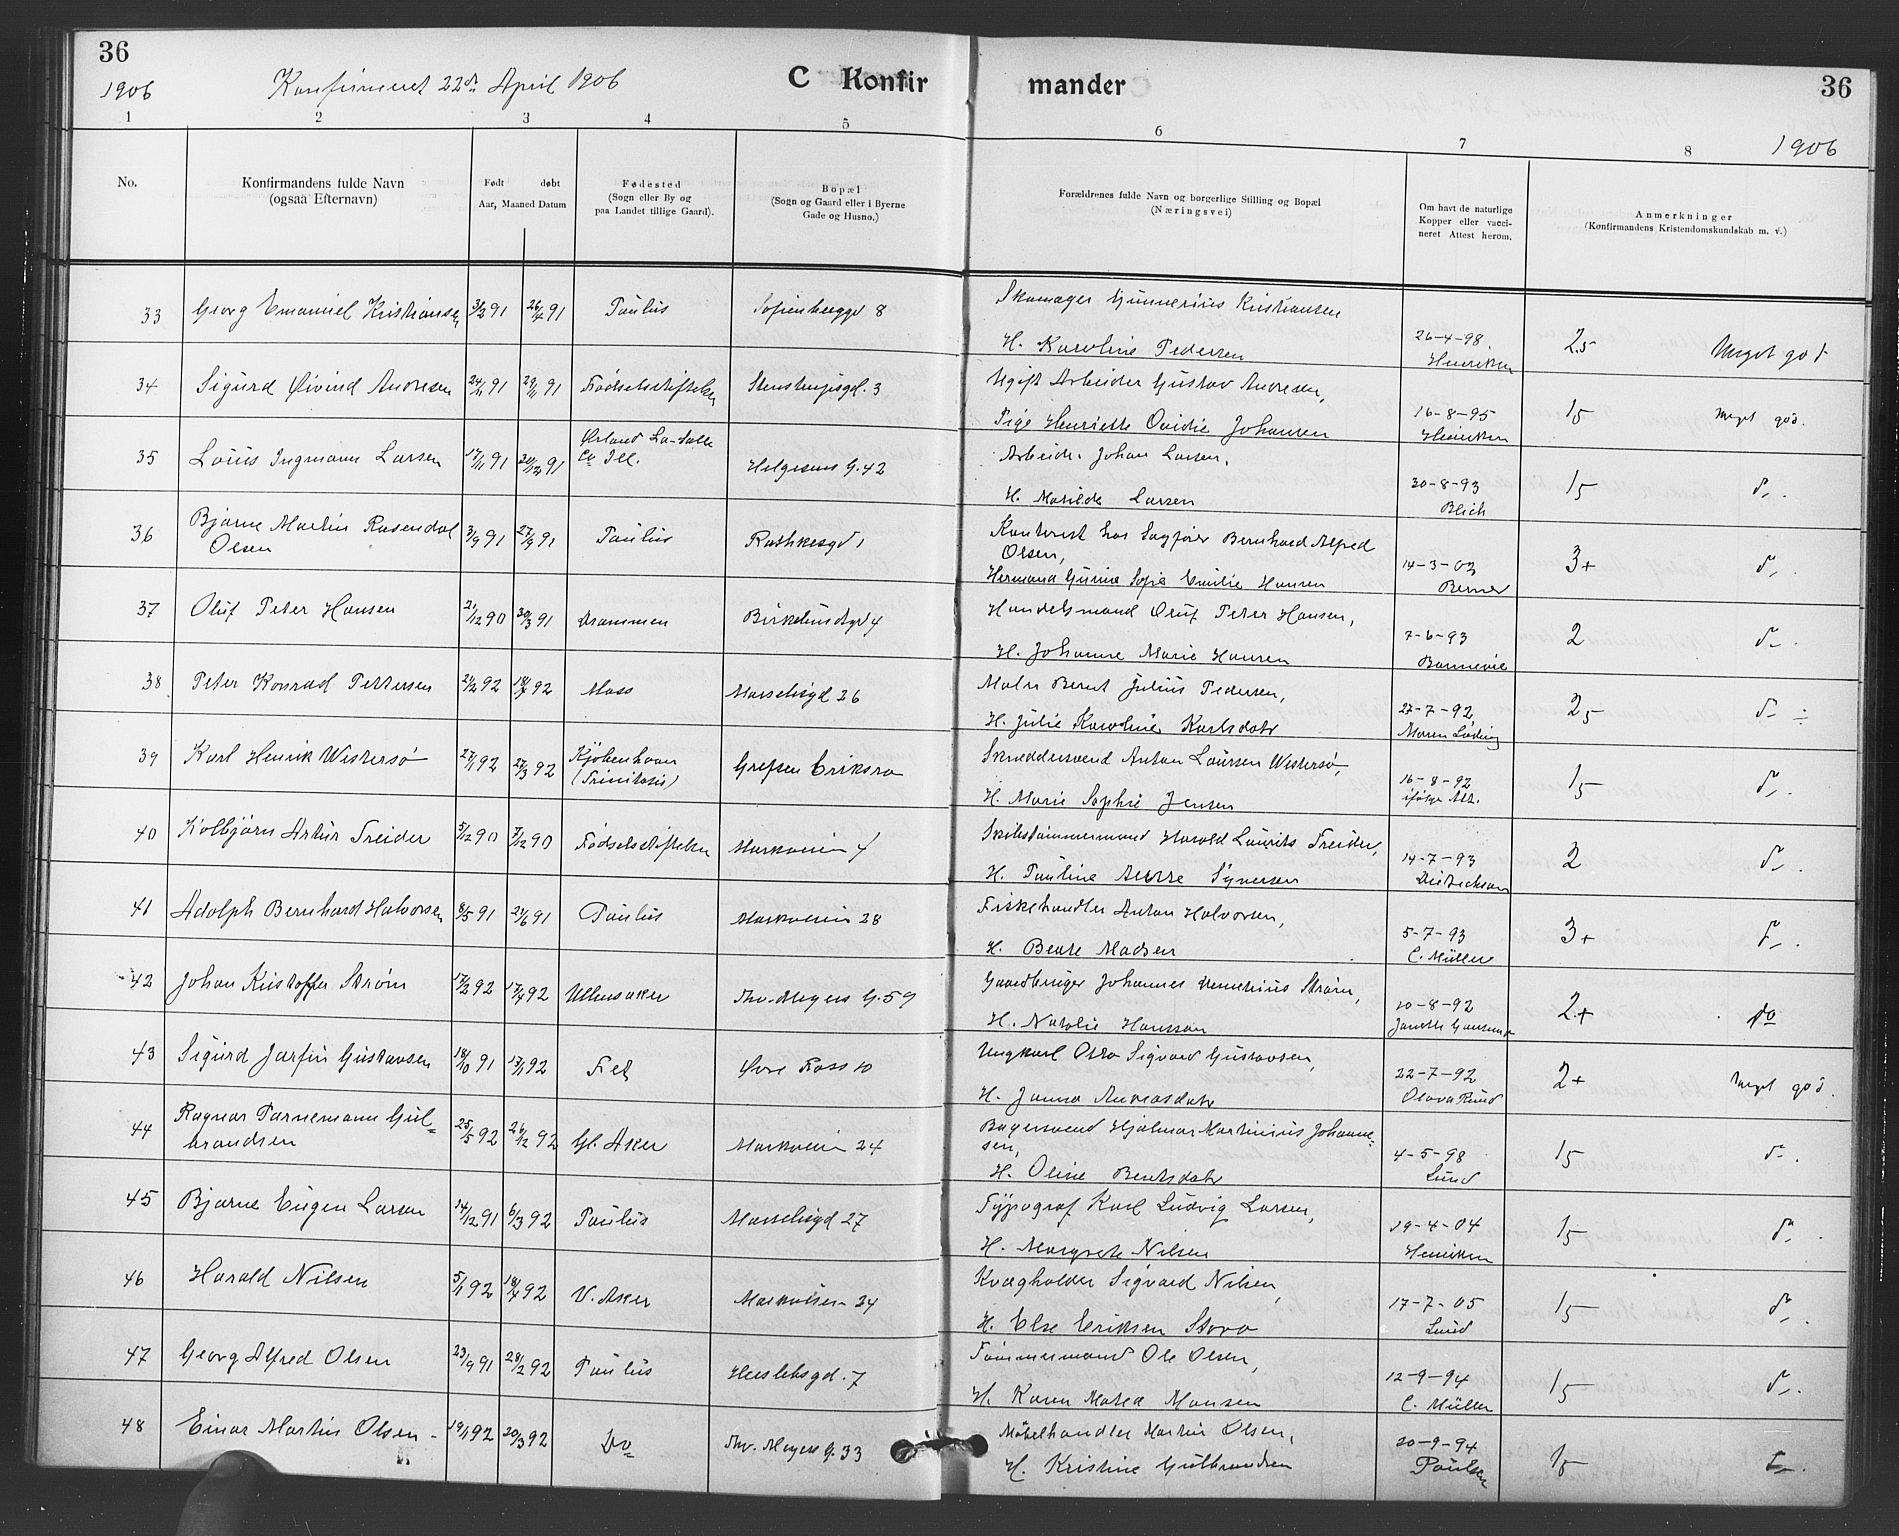 36
1906
Konfirmeret 22de April 1906
C Konfir
mander
36
1906
1 2 3 4 5 6 7 8
No.
Konfirmandens fulde Navn
(ogsaa Efternavn)
Født døbt
Aar, Maaned Datum
Fødested
(Sogn eller By og
paa Landet tillige Gaard).
Bopæl
(Sogn og Gaard eller i Byerne
Gade og Husno.)
Forældrenes fulde Navn og borgerlige Stilling og Bopæl
(Næringsvei)
Om havt de naturlige
Kopper eller vacci-
neret Attest herom.
Anmerkninger
(Konfirmandens Kristendomskundskab m. v.)
33 Georg Emanuel Kristiansen 3/2 91 26/4 91 Paulus Sofienberggd 8 Skomager Gunnerius Kristiansen
H. Karoline Pedersen 26-4-98. Henriksen 25 Meget god
34 Sigurd Øivind Andresen 24/11 91 29/11 91 Fødselsstiftelsen Stenstrupsgd. 3 Ugift Arbeider Gustav Andresen,
Pige Henriette Ovidie Johansen 16-8-95 Henriksen 15 Meget god.
35 Louis Ingmann Larsen 17/11 91 20/12 91 Ørland La-Salle
Co Ill. Helgesens G. 42 Arbeider Johan Larsen,
H. Matilde Larsen 30-8-93 Blich 15 do.
36 Bjarne Martin Rosendal
Olsen 3/9 91 27/9 91 Paulus Rathkesgd 1 Kontorist hos Sagfører Bernhard Alfred
Olsen,
Hermana Gurine Sofie Emilie Hansen 14-3-03 Berner 3+ do.
37 Oluf Peter Hansen 21/12 90 30/3 91 Drammen Birkelundgd 4 Handelsmand Oluf Peter Hansen,
H. Johanne Marie Hansen 7-6-93 Bonnevie 2 do.
38 Peter Konrad Pettersen 21/2 92 18/7 92 Moss Marselisgd 26 Maler Bernt Julius Pedersen,
H. Julie Karoline Karlsdatr 27-7-92 Maren 25 do ÷
39 Karl Henrik Westersø 27/1 92 27/3 92 Kjøbenhavn
(Trinitatis) Grefsen Eriksro Skræddersvend Anton Laursen Westersø,
H. Marie Sophie Jensen 16-8-92 ifølge Att. 15 do.
40 Kolbjørn Artur Treider 5/12 90 7/12 90 Fødselsstiftelsen Markveien 4 Skibstømmermand Harald Laurits Treider,
H. Pauline Aurre Syversen 14-7-93 Diedrichson 2 do.
41 Adolph Bernhard Halvorsen 8/5 91 21/6 91 Paulus Markveien 28 Fiskehandler Anton Halvorsen,
H. Beate Madsen 5-7-93 C. Müller 3+ do.
42 Johan Kristoffer Strøm 17/2 92 17/4 92 Ullensaker Thv. Meyers G. 59 Gaardbruger Johannes Demetrius Strøm,
H. Natalie Hansson 20-8-92 Janette 2+ do
43 Sigurd Jarfin Gustavsen 18/10 91 17/1 92 Fet Øvre Foss 10 Ungkarl Otto Sigvard Gustavsen,
H. Janna Andreasdatr 22-7-92 Olava Ruud 2+ Meget god.
44 Ragnar Parnemann Gul-
brandsen 25/5 92 26/12 92 Gl. Aker Markveien 24 Bagersvend Hjalmar Martinius Johanne-
sen,
H. Oline Berntsdatr 4-5-98 Lund 15 do.
45 Bjarne Eugen Larsen 14/12 91 6/3 92 Paulus Marselisgd 27 Typograf Karl Ludvig Larsen,
H. Margrete Nilsen 19-4-04 Henriksen 15 do.
46 Harald Nilsen 5/1 92 18/4 92 V. Aker Markveien 34 Kvægholder Sigvard Nilsen,
H. Else Eriksen Storo 17-7-05 Lund 15 do.
47 Georg Alfred Olsen 23/9 91 28/2 92 Paulus Heslebsgd. 7 Tømmermand Ole Olsen,
H. Karen Matea Monsen 12-9-94 C. Müller 15 do.
48 Einar Martin Olsen 19/1 92 20/3 92 Do Thv. Meyers G. 33 Møbelhandler Martin Olsen,
H. Kristine Gulbrandsen 20-9-94 Paulsen 15 do.